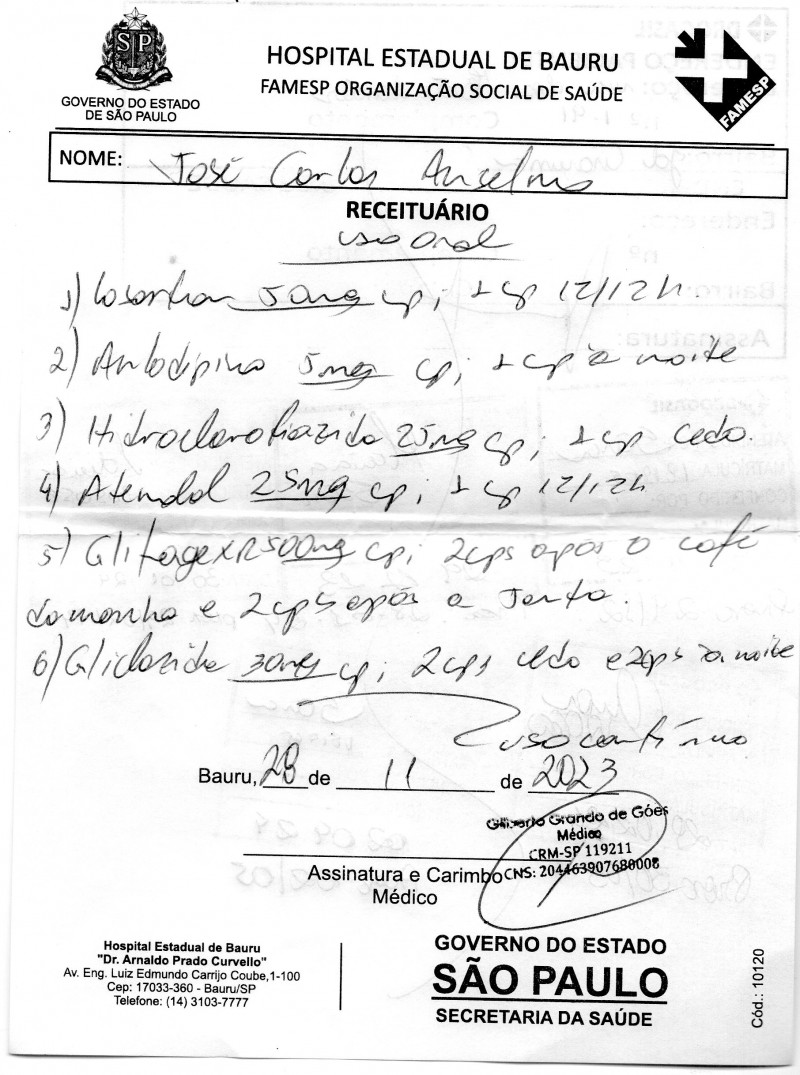 GOVERNO DO ESTADO
DE SÃO PAULO
HOSPITAL ESTADUAL DE BAURU
FAMESP ORGANIZAÇÃO SOCIAL DE SAÚDE
FAMESP
NOME: José Carlos Anselmo
RECEITUÁRIO
uso oral
1) Losartan 50mg cp; 1 cp 12/12h.
2) Anlodipino 5mg cp; 1 cp à noite
3) Hidroclorotiazida 25mg cp; 1 cp cedo.
4) Atenolol 25mg cp; 1 cp 12/12h
5) Glifage XR 500mg cp; 2cps após o café
da manhã e 2 cps após a Janta.
6) Gliclazida 30mg cp; 2cps cedo e 2cps à noite
uso contínuo
Bauru, 28 de 11 de 2023
Gilberto Grando de Góes
Médico
CRM-SP 119211
CNS: 204463907680008
Assinatura e Carimbo
Médico
Hospital Estadual de Bauru
"Dr. Arnaldo Prado Curvello"
Av. Eng. Luiz Edmundo Carrijo Coube,1-100
Cep: 17033-360 - Bauru/SP
Telefone: (14) 3103-7777
GOVERNO DO ESTADO
SÃO PAULO
SECRETARIA DA SAÚDE
Cód.: 10120